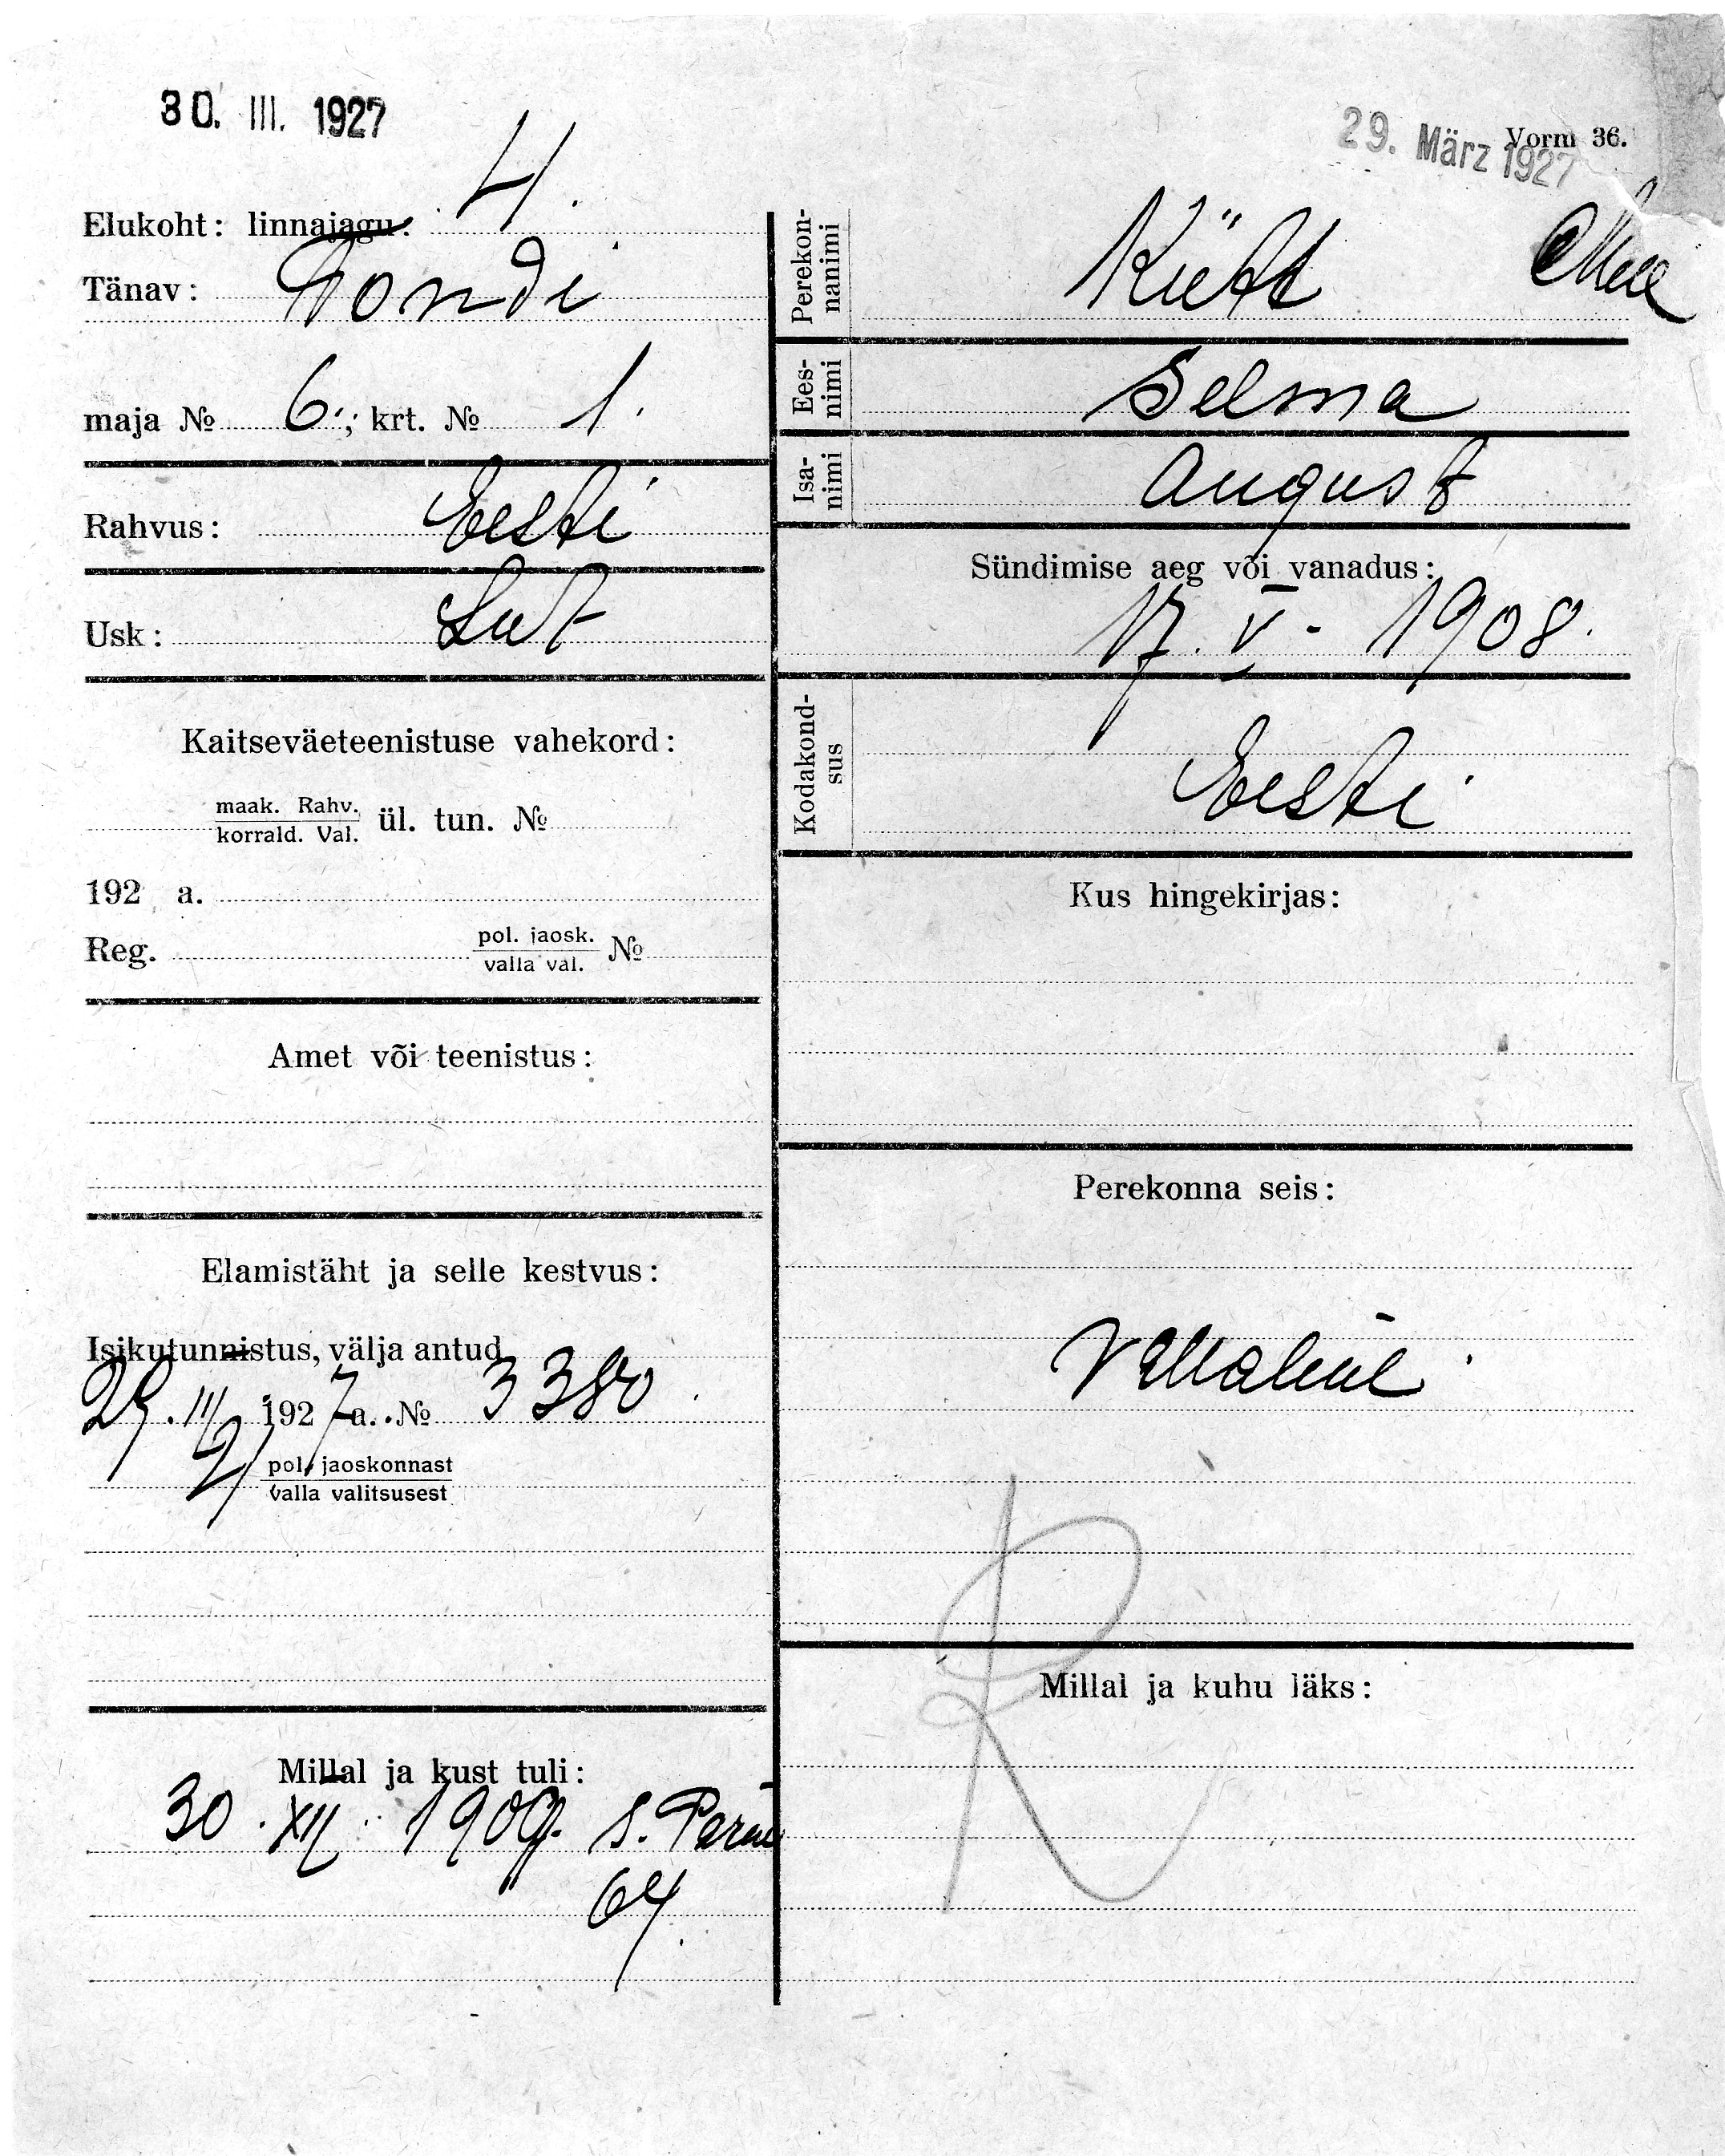 30. III. 1927
29. März 1927
Vorm 36.
Elukoht: linnajagu: 4.
Tänav: Tondi
maja № 6.; krt. № 1.
Rahvus: Eesti
Usk: Lut
Kaitseväeteenistuse vahekord:
maak. Rahv.
korrald. Val. ül. tun. №
192 a.
Reg. pol. jaosk. №
valla val.
Amet või teenistus:
Elamistäht ja selle kestvus:
Isikutunnistus, välja antud
29. III 1927 a. № 3380.
pol. jaoskonnast
valla valitsusest
Millal ja kust tuli:
30. XII. 1909. S. Pärnu
64.
Perekon-
nanimi
Kütt
Ees-
nimi
Selma
Isa-
nimi
August
Sündimise aeg või vanadus:
17. V - 1908.
Kodakond-
sus
Eesti
Kus hingekirjas:
Perekonna seis:
Vallaline
R
Millal ja kuhu läks: